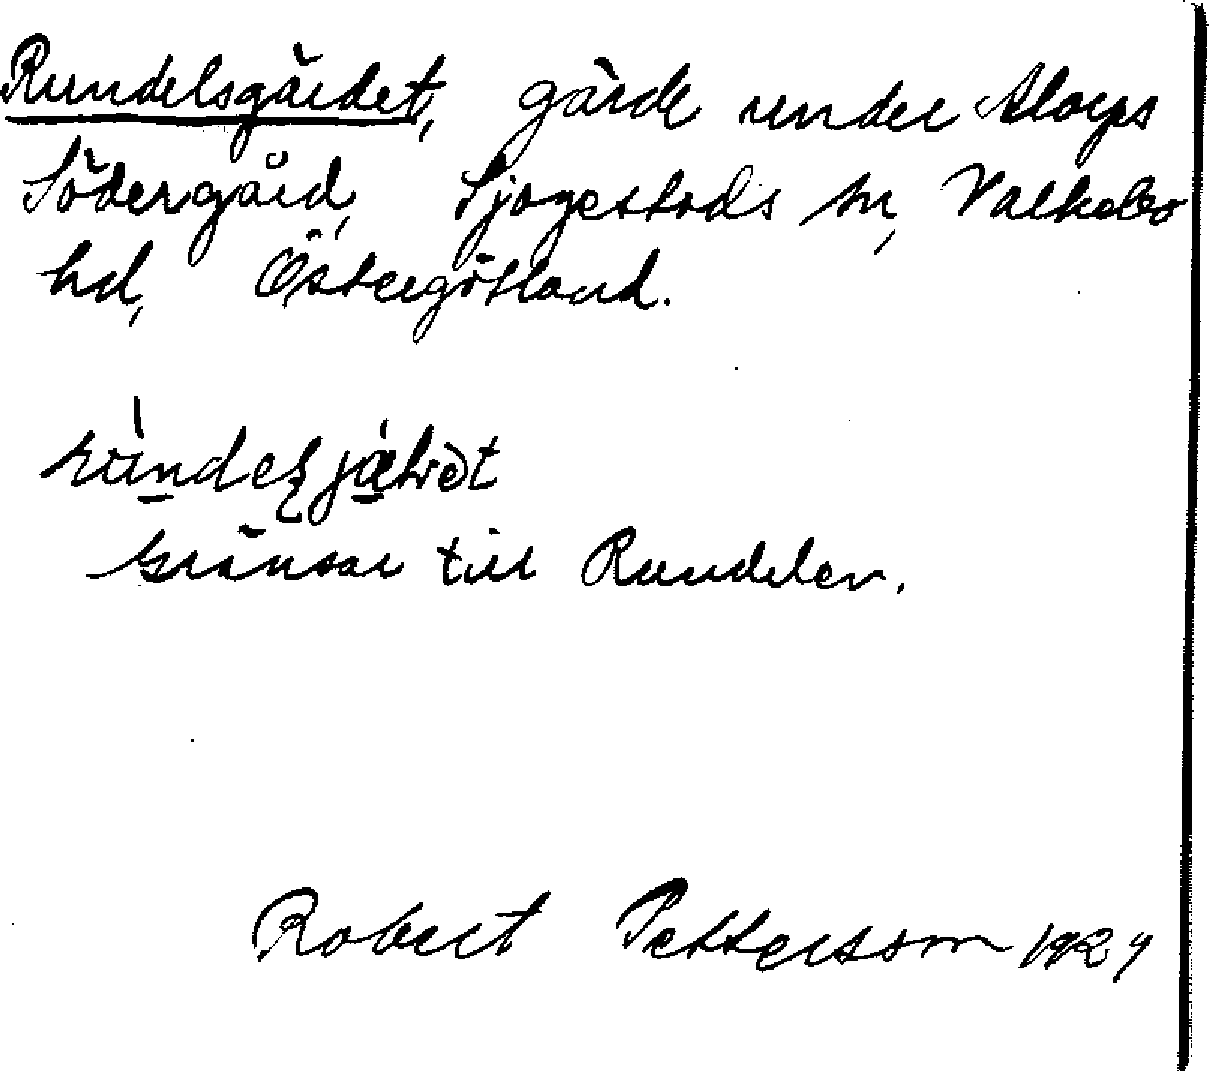 Rundelsgärdet, gärde under Aloryds
Södergård, Sjögestads sn, Valkebo
hd, Östergötland.
gränsar till Rundelen.
Robert Pettersson 192